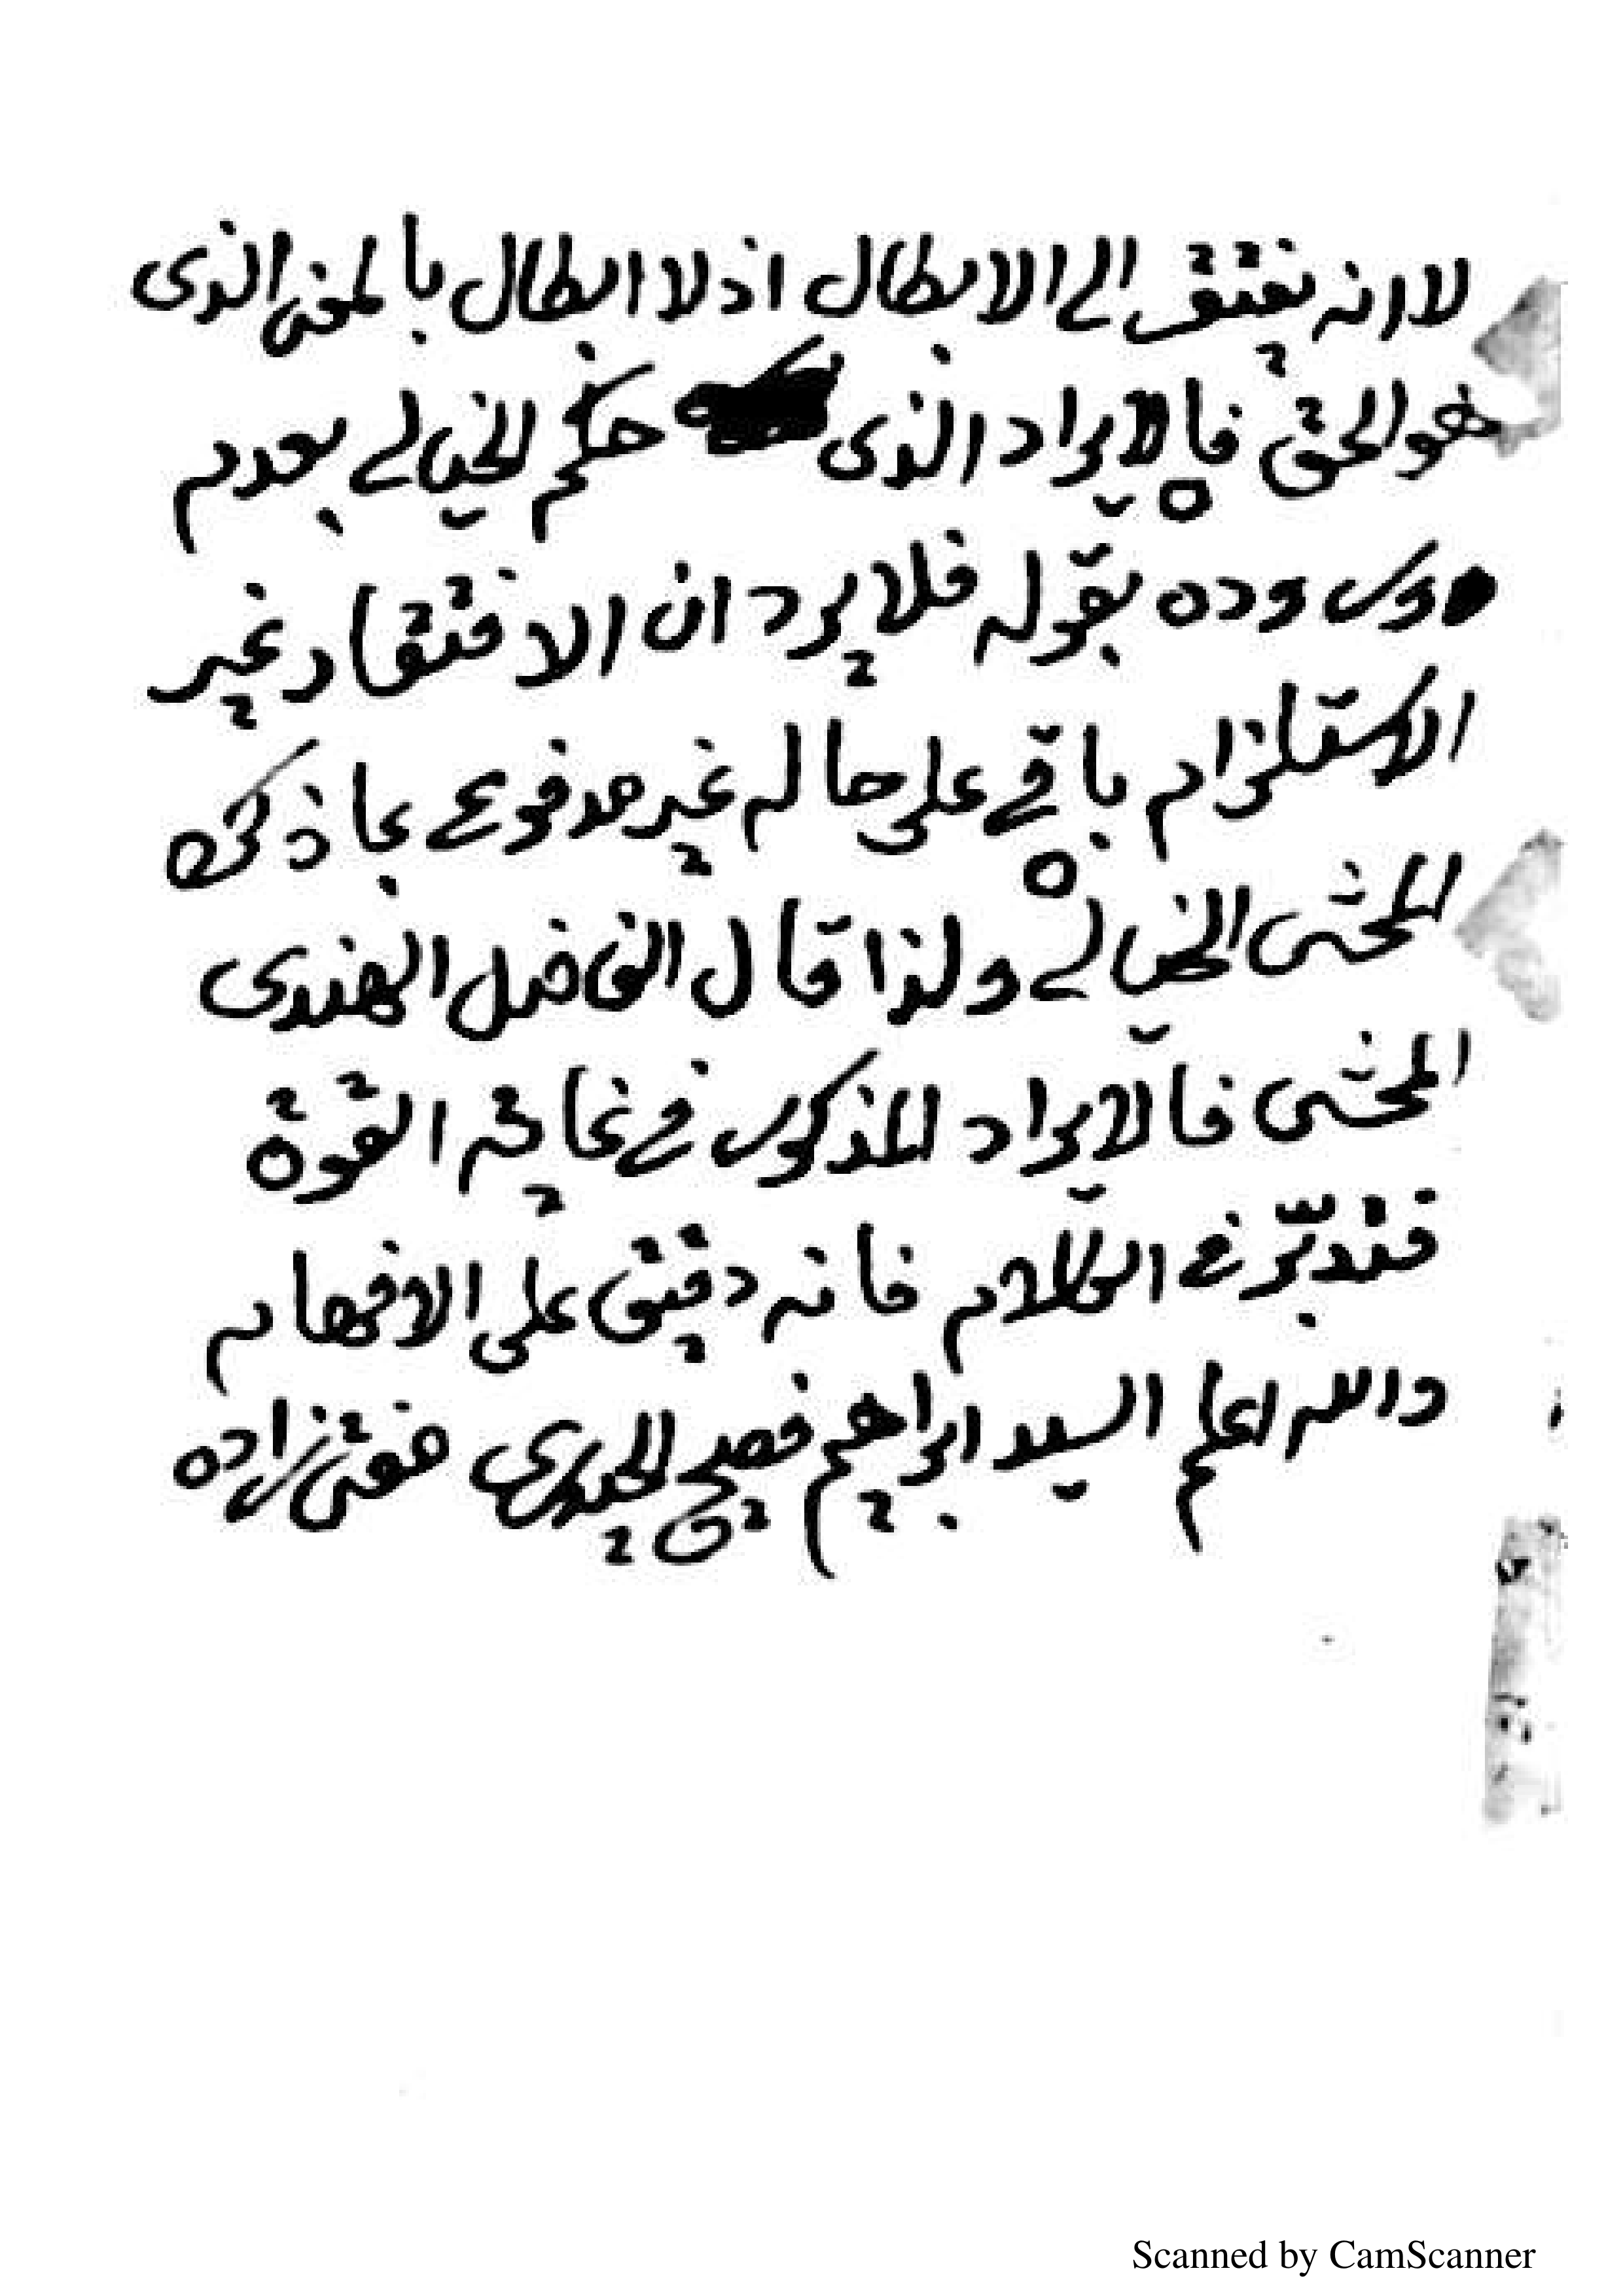 لا انه يفتقر الى الابطال اذ لا ابطال بالمعنى الذى
هو الحق فالايراد الذى حكم الخيالي بعدم
وروده بقوله فلا يرد ان الافتقار غير
الاستلزام باقي على حاله غير مدفوع بما ذكره
المحشى الخيالي ولذا قال الفاضل الهندى
المحشى فالايراد المذكور في غاية القوة
فتدبّر في الكلام فانه دقيق على الافهام
والله اعلم السيد ابراهيم فصيح الحيدرى مفتى زاده
Scanned by CamScanner